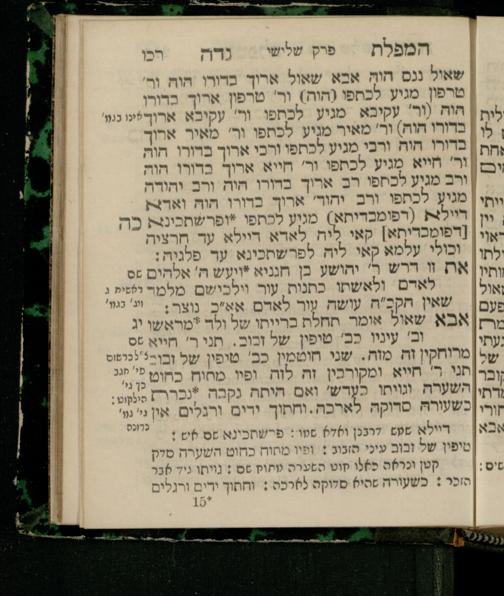 המפלת פרק שלישי נדה רכו
שאול ננס הוה אבא שאול ארוך בדורו הוה ור׳
טרפון מגיע לכתפו (הוה) ור׳ טרפון ארוך בדורו
הוה (ור׳ עקיבא מגיע לכתפו ור׳ עקיבא ארוך
בדורו הוה) ור׳ מאיר מגיע לכתפו ור׳ מאיר ארוך
בדורו הוה ורבי מגיע לכתפו ורבי ארוך בדורו הוה
ור׳ חייא מגיע לכתפו ור׳ חייא ארוך בדורו הוה
ורב מגיע לכתפו רב ארוך בדורו הוה ורב יהודה
מגיע לכתפו ורב יהוד׳ ארוך בדורו הוה ואדא
דיילא (דפומבדיתא) מגיע לכתפו *ופרשתבינא כה
[דפומבדיתא] קאי ליה לאדא דיילא עד חרציה
וכולי עלמא קאי ליה לפרשתבינא עד פלגיה:
את זו דרש ר׳ יהושע בן חנניא *ויעש ה׳ אלהים
לאדם ולאשתו כתנות עור וילבישם מלמד
שאין הקב״ה עושה עור לאדם אא״כ נוצר:
אבא שאול אומר תחלת ברייתו של ולד *מראשו
וב׳ עיניו כב׳ טיפין של זבוב. תני ר׳ חייא
מרוחקין זה מזה. שני חוטמין כב׳ טיפין של זבוב
תני ר׳ חייא ומקורבין זה לזה ופיו מתוח כחוט
השערה וגויתו כעדש׳ ואם היתה נקבה *נבררת
כשעורה סדוקה לארכה. וחתוך ידים ורגלים אין
דיילא שמש דרבנן ואדא שמו: פרשתבינא שם איש:
טיפין של זבוב עיני הזבוב: ופיו מתוח כחוט השערה סדק
קטן ונראה כאלו חוט השערה מתוח שם: גויתו גיד אבר
הזכר: כשעורה שהיא סדוקה לארכה: וחתוך ידים ורגלים
15*